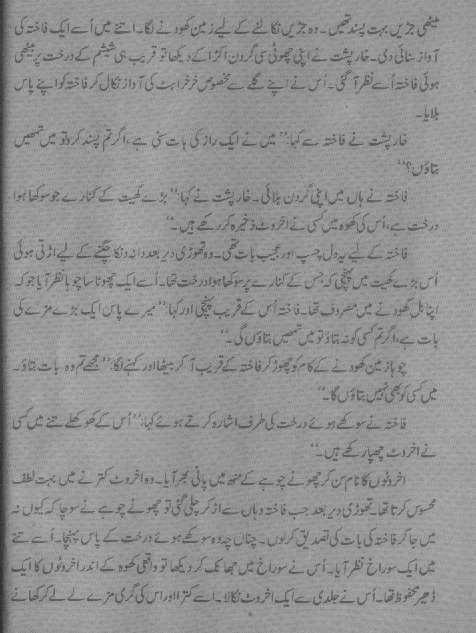 میٹھی جڑیں بہت پسند تھیں۔ وہ جڑیں نکالنے کے لیے زمین کھودنے لگا۔ اتنے میں اُسے ایک فاختہ کی
آواز سنائی دی۔ خارپشت نے اپنی چھوٹی سی گردن اکڑا کے دیکھا تو قریب ہی شیشم کے درخت پر بیٹھی
ہوئی فاختہ اُسے نظر آ گئی۔ اُس نے اپنے گلے سے مخصوص خرخراہٹ کی آواز نکال کر فاختہ کو اپنے پاس
بلایا۔
خارپشت نے فاختہ سے کہا: ’’میں نے ایک راز کی بات سنی ہے، اگر تم پسند کرو تو میں تمھیں
بتاؤں؟‘‘
فاختہ نے ہاں میں اپنی گردن ہلائی۔ خارپشت نے کہا: ’’بڑے کھیت کے کنارے جو سوکھا ہوا
درخت ہے، اُس کی کھوہ میں کسی نے اخروٹ ذخیرہ کر رکھے ہیں۔‘‘
فاختہ کے لیے یہ دل چسپ اور عجیب بات تھی۔ وہ تھوڑی دیر بعد دانہ دنکا چگنے کے لیے اڑتی ہوئی
اُس بڑے کھیت میں پہنچی کہ جس کے کنارے پر سوکھا ہوا درخت تھا۔ اُسے ایک چھوٹا سا چوہا نظر آیا جو کہ
اپنا بل کھودنے میں مصروف تھا۔ فاختہ اُس کے قریب پہنچی اور کہا: ’’میرے پاس ایک بڑے مزے کی
بات ہے، اگر تم کسی کو نہ بتاؤ تو میں تمھیں بتاؤں گی۔‘‘
چوہا زمین کھودنے کے کام کو چھوڑ کر فاختہ کے قریب آ کر بیٹھا اور کہنے لگا: ’’مجھے تم وہ بات بتاؤ۔
میں کسی کو بھی نہیں بتاؤں گا۔‘‘
فاختہ نے سوکھے ہوئے درخت کی طرف اشارہ کرتے ہوئے کہا: ’’اُس کے کھوکھلے تنے میں کسی
نے اخروٹ چھپا رکھے ہیں۔‘‘
اخروٹوں کا نام سن کر چھوٹے چوہے کے منھ میں پانی بھر آیا۔ وہ اخروٹ کترنے میں بہت لطف
محسوس کرتا تھا۔ تھوڑی دیر بعد جب فاختہ وہاں سے اڑ کر چلی گئی تو چھوٹے چوہے نے سوچا کہ کیوں نہ
میں جا کر فاختہ کی بات کی تصدیق کر لوں۔ چناں چہ وہ سوکھے ہوئے درخت کے پاس پہنچا۔ اُسے تنے
میں ایک سوراخ نظر آیا۔ اُس نے سوراخ میں جھانک کر دیکھا تو واقعی کھوہ کے اندر اخروٹوں کا ایک
ڈھیر محفوظ تھا۔ اُس نے جلدی سے ایک اخروٹ نکالا۔ اسے کترا اور اس کی گری مزے لے لے کر کھانے